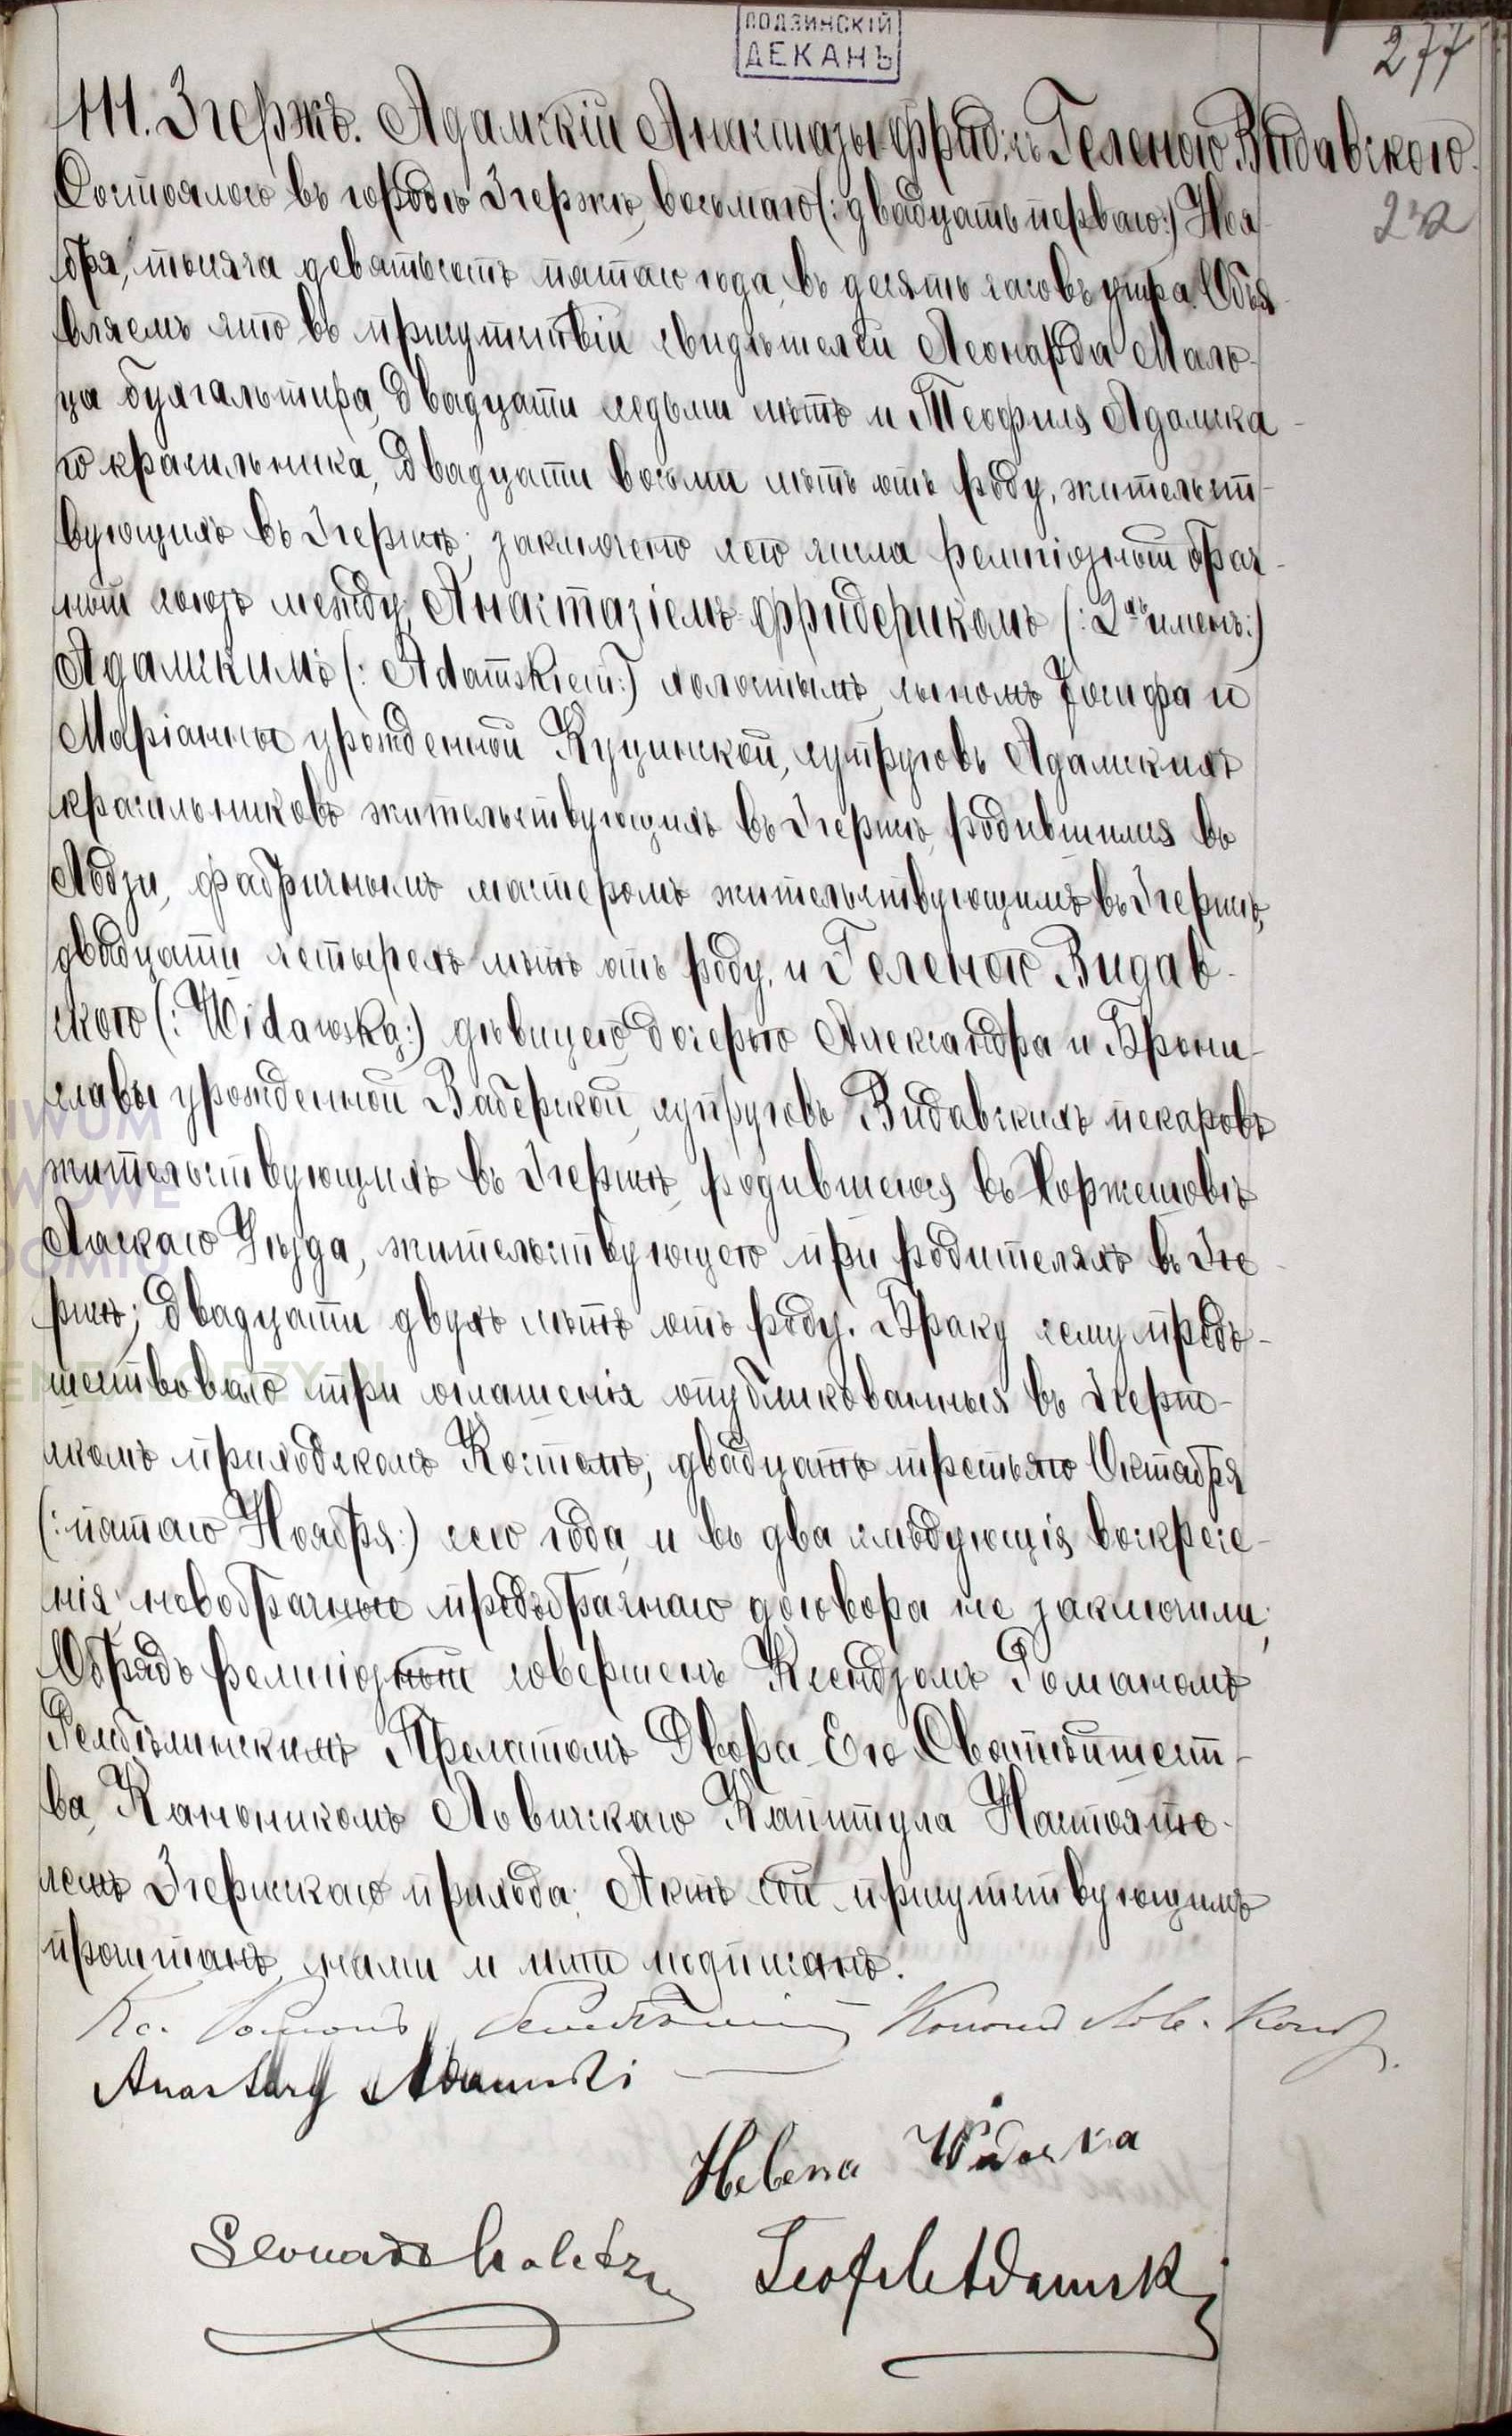 ЛОДЗИНСКІЙ
ДЕКАНЪ
277
111. Згержъ. Адамскій Анастазы Фрид: съ Геленою Видавскою.
232
Состоялось въ городѣ Згержѣ, восьмаго (: двадцать перваго:) Ноя-
бря, тысяча девятьсотъ пятаго года, въ десять часовъ утра. Объя-
вляемъ что въ присутствіи свидѣтелей Леонарда Маль-
ца бухгальтира, двадцати седьми лѣтъ и Теофиля Адамска-
го красильника, двадцати восьми лѣтъ отъ роду, жительст-
вующихъ въ Згержѣ; заключенъ сего числа религіозный брач-
ный союзъ между, Анастазіемъ-Фридерикомъ (: 2хъ именъ:)
Адамскимъ (: Adamskiem:) холостымъ, сыномъ Іосифа и
Маріанны урожденной Куцинской, супруговъ Адамскихъ
красильниковъ жительствующихъ въ Згержѣ, родившимся въ
Лодзи, фабричнымъ мастеромъ жительствующимъ въ Згержѣ,
двадцати четырехъ лѣтъ отъ роду, и Геленою Видав-
скою (: Widawską:) дѣвицею, дочерью Александра и Брони-
славы урожденной Заберской, супруговъ Видавскихъ пекаровъ
жительствующихъ въ Згержѣ, родившеюся въ Хоржешовѣ
Ласкаго Уѣзда, жительствующею при родителяхъ въ Зге-
ржѣ; двадцати двухъ лѣтъ отъ роду. Браку сему предъ-
шествовало три оглашенія опубликованныя въ Згерж-
скомъ приходскомъ Костелѣ, двадцать третьяго Октября
(: пятаго Ноября:) сего года, и въ два слѣдующія воскресе-
нія; новобрачные предъбрачнаго договора не заключили;
Обрядъ религіозный совершенъ Ксендзомъ Романомъ
Рембѣлинскимъ Прелатомъ Двора Его Святѣйшест-
ва, Каноникомъ Ловичскаго Капитула Настояте-
лемъ Згержскаго прихода. Актъ сей присутствующимъ
прочитанъ, нами и ими подписанъ.
Кс. Романъ Рембѣлинскій Канон. Лов.
Anastazy Adamski
Helena Widawska
Leonard Maletz
Teofil Adamski